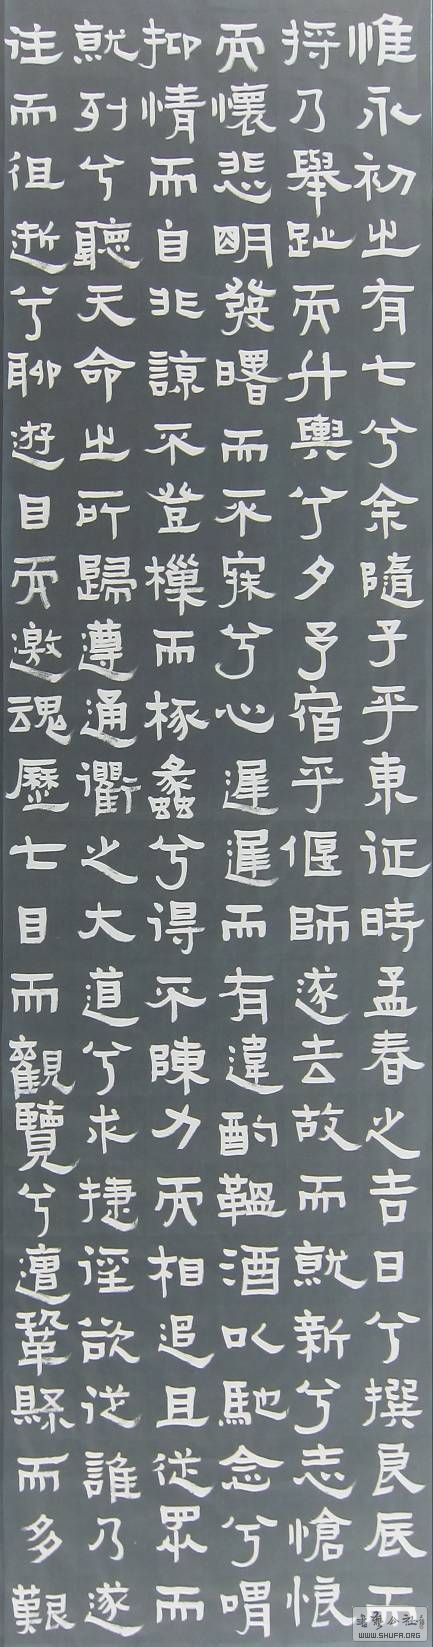 惟永初之有七兮余隨子乎東征時孟春之吉日兮撰良辰而
将乃舉趾而升輿兮夕予宿乎偃師遂去故而就新兮志愴悢
而懷悲明發曙而不寐兮心遲遲而有違酌鞰酒以馳念兮喟
抑情而自非諒不登樔而椓蠡兮得不陳力而相追且從眾而
就列兮聽天命之所歸遵通衢之大道兮求捷徑欲從誰乃遂
往而徂逝兮聊遊目而邀魂歷七目而觀覽兮遭鞏縣而多艱
WWW.SHUFA.ORG